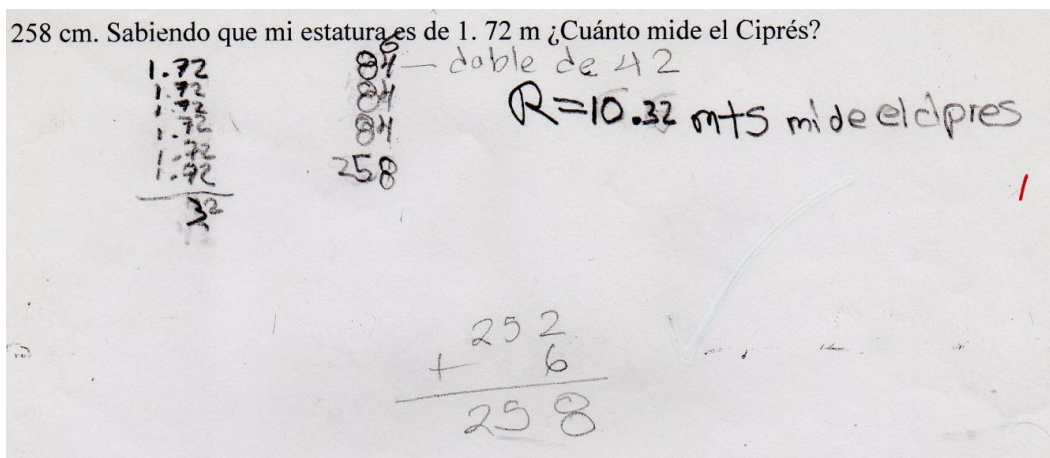 258 cm. Sabiendo que mi estatura es de 1. 72 m ¿Cuánto mide el Ciprés?
6
1.72
1.72
1.72
1.72
1.72
1.72
32
84 — doble de 42
84
84
258
R=10.32 mts mide el cipres
252
+ 6
258